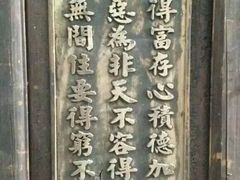 得富存心積德加
惡為非天不容得
無間住要得窮不